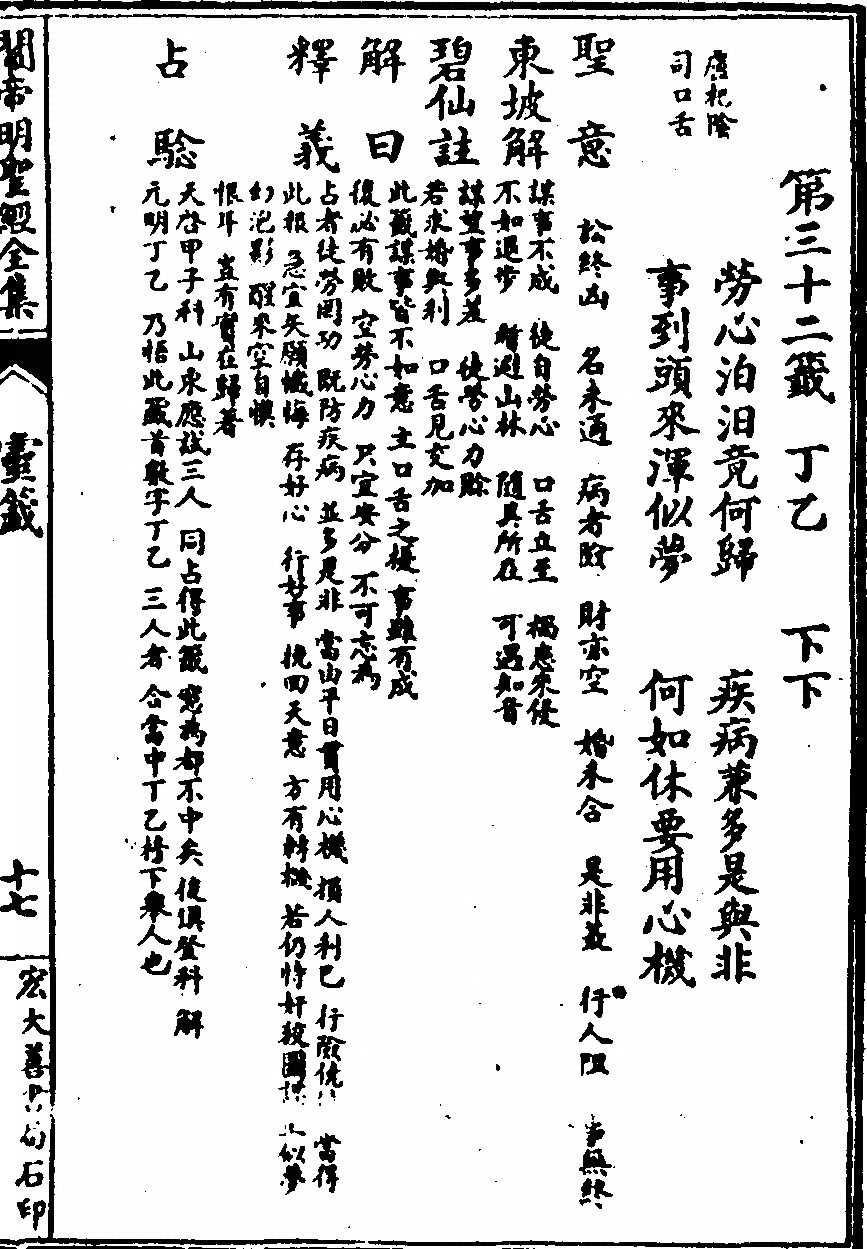 第三十二籤 丁乙 下下
勞心汨汨竟何歸 疾病兼多是與非
事到頭來渾似夢 何如休要用心機
盧杞陰
司口舌
聖意 訟終凶 名未通 病者險 財亦空 婚未合 是非並 行人阻 事無終
東坡解 謀事不成 徒自勞心 口舌立至 禍患來侵
不如退步 暗避山林 隨其所在 可遇知音
碧仙註 謀望事多差 徒勞心力賒
若求婚與利 口舌見交加
解曰 此籤謀事皆不如意 主口舌之擾 事雖有成
後必有敗 空勞心力 只宜安分 不可忘為
釋義 占者徒勞罔功 既防疾病 並多是非 當由平日貫用心機 損人利己 行險僥 當得
此報 急宜矢願懺悔 存好心 行好事 挽回天意 方有轉機 若仍恃奸狡圖謀 似夢
幻泡影 醒來空自懊
恨耳 豈有實在歸著
占驗 天啓甲子科 山東應試三人 同占得此籤 竊為都不中矣 後俱登科 解
元明丁乙 乃悟此籤首數字丁乙 三人者 合當中丁乙榜下舉人也
關帝明聖經全集
靈籤
十七
宏大善書局石印